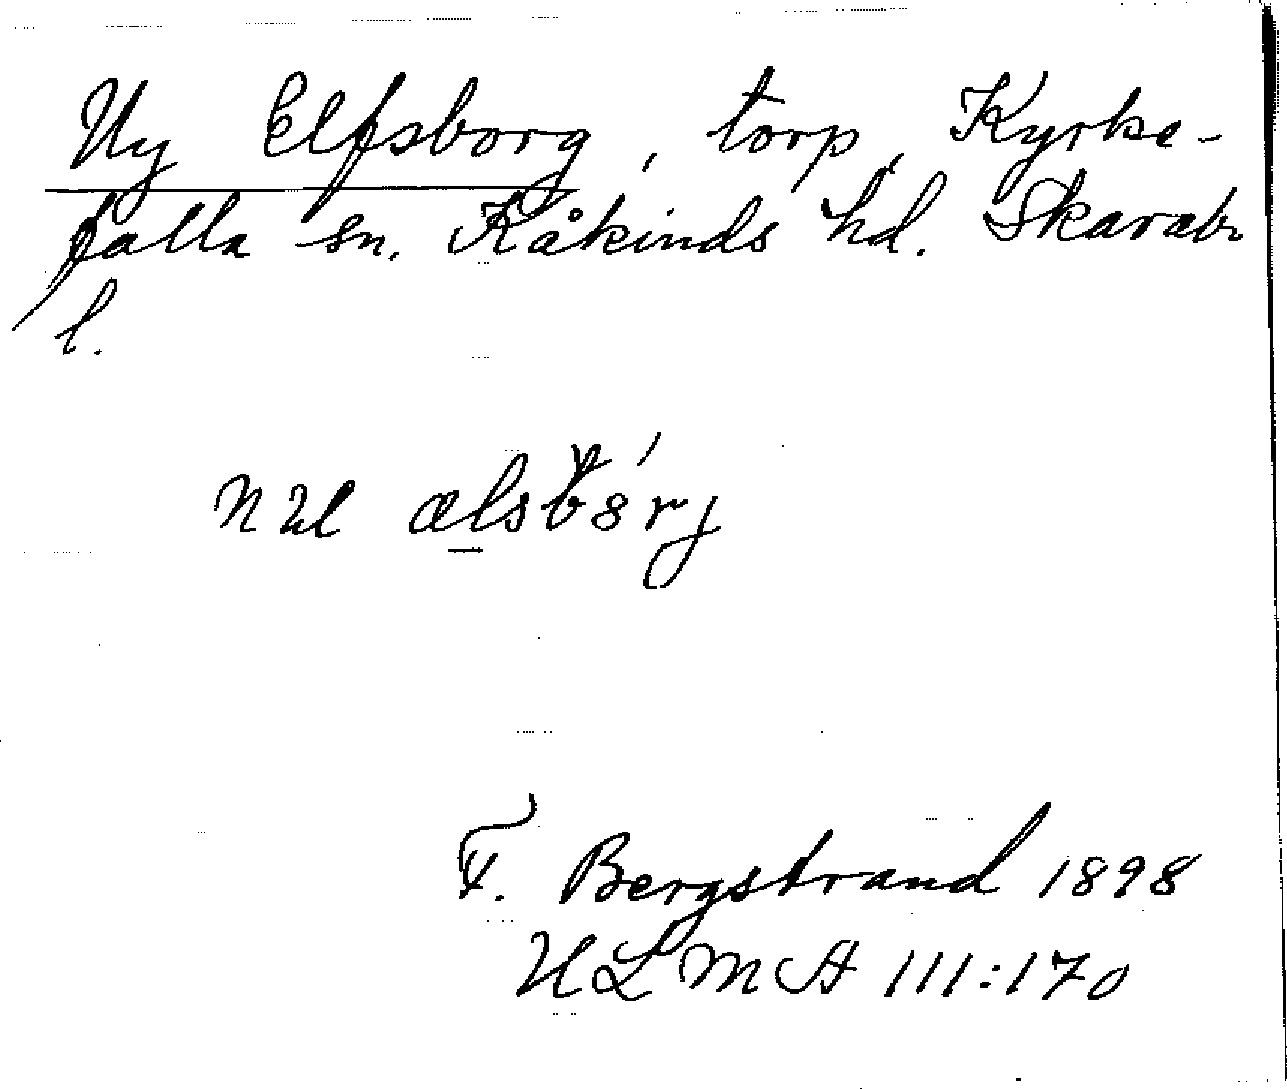 Ny Elfsborg, torp, Kyrke-
falla sn. Kåkinds hd. Skarab
l.
F. Bergstrand 1898
ULMA 111:170